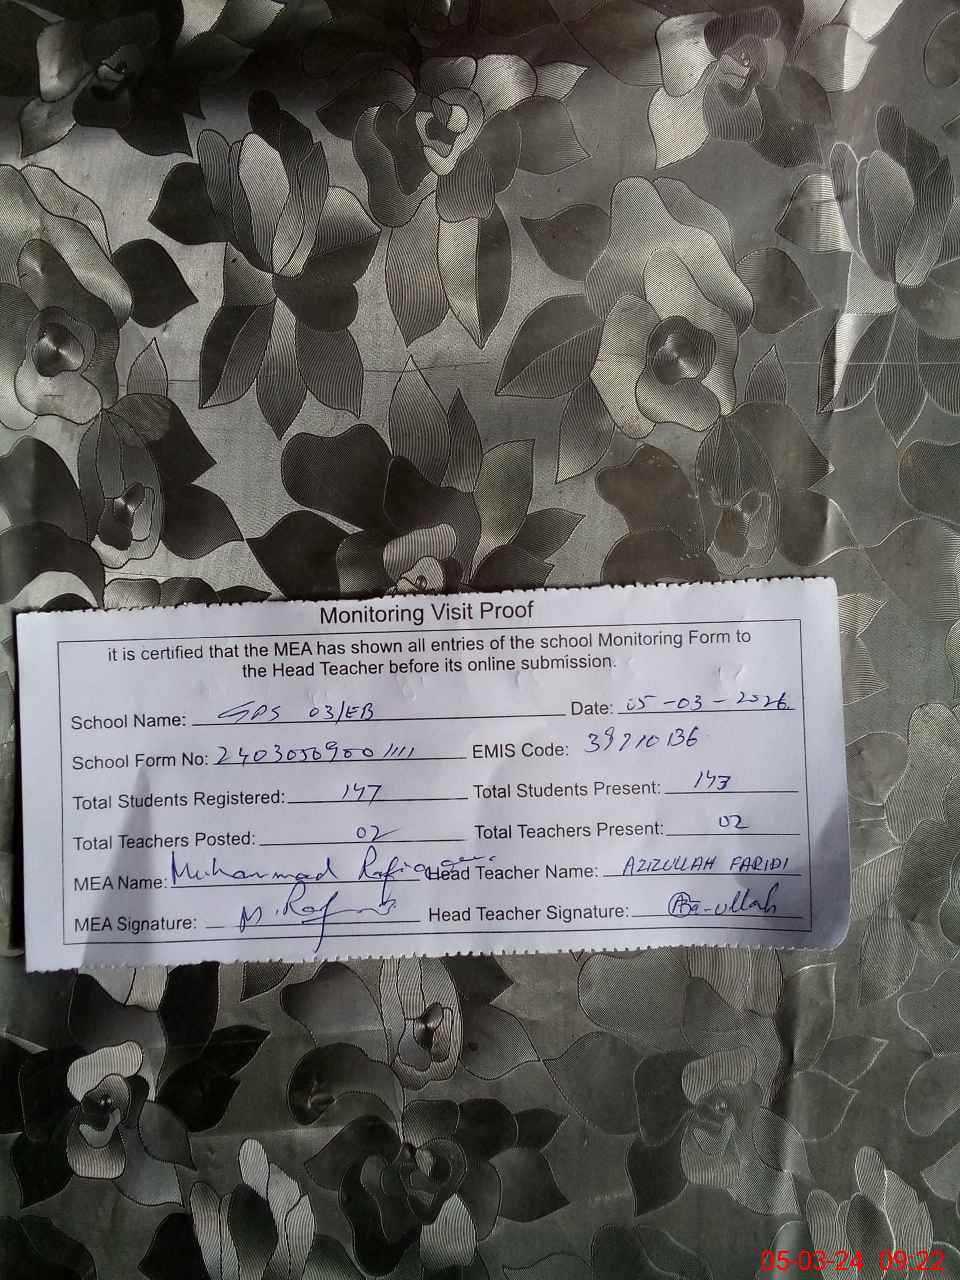 Monitoring Visit Proof
it is certified that the MEA has shown all entries of the school Monitoring Form to
the Head Teacher before its online submission.
School Name: GPS 03/EB Date: 05-03-2026
School Form No: EMIS Code: 39210136
Total Students Registered: 147 Total Students Present: 143
Total Teachers Posted: 02 Total Teachers Present: 02
MEA Name: Muhammad Head Teacher Name: AZIZULLAH FARIDI
MEA Signature: Head Teacher Signature:
05-03-24 09:22